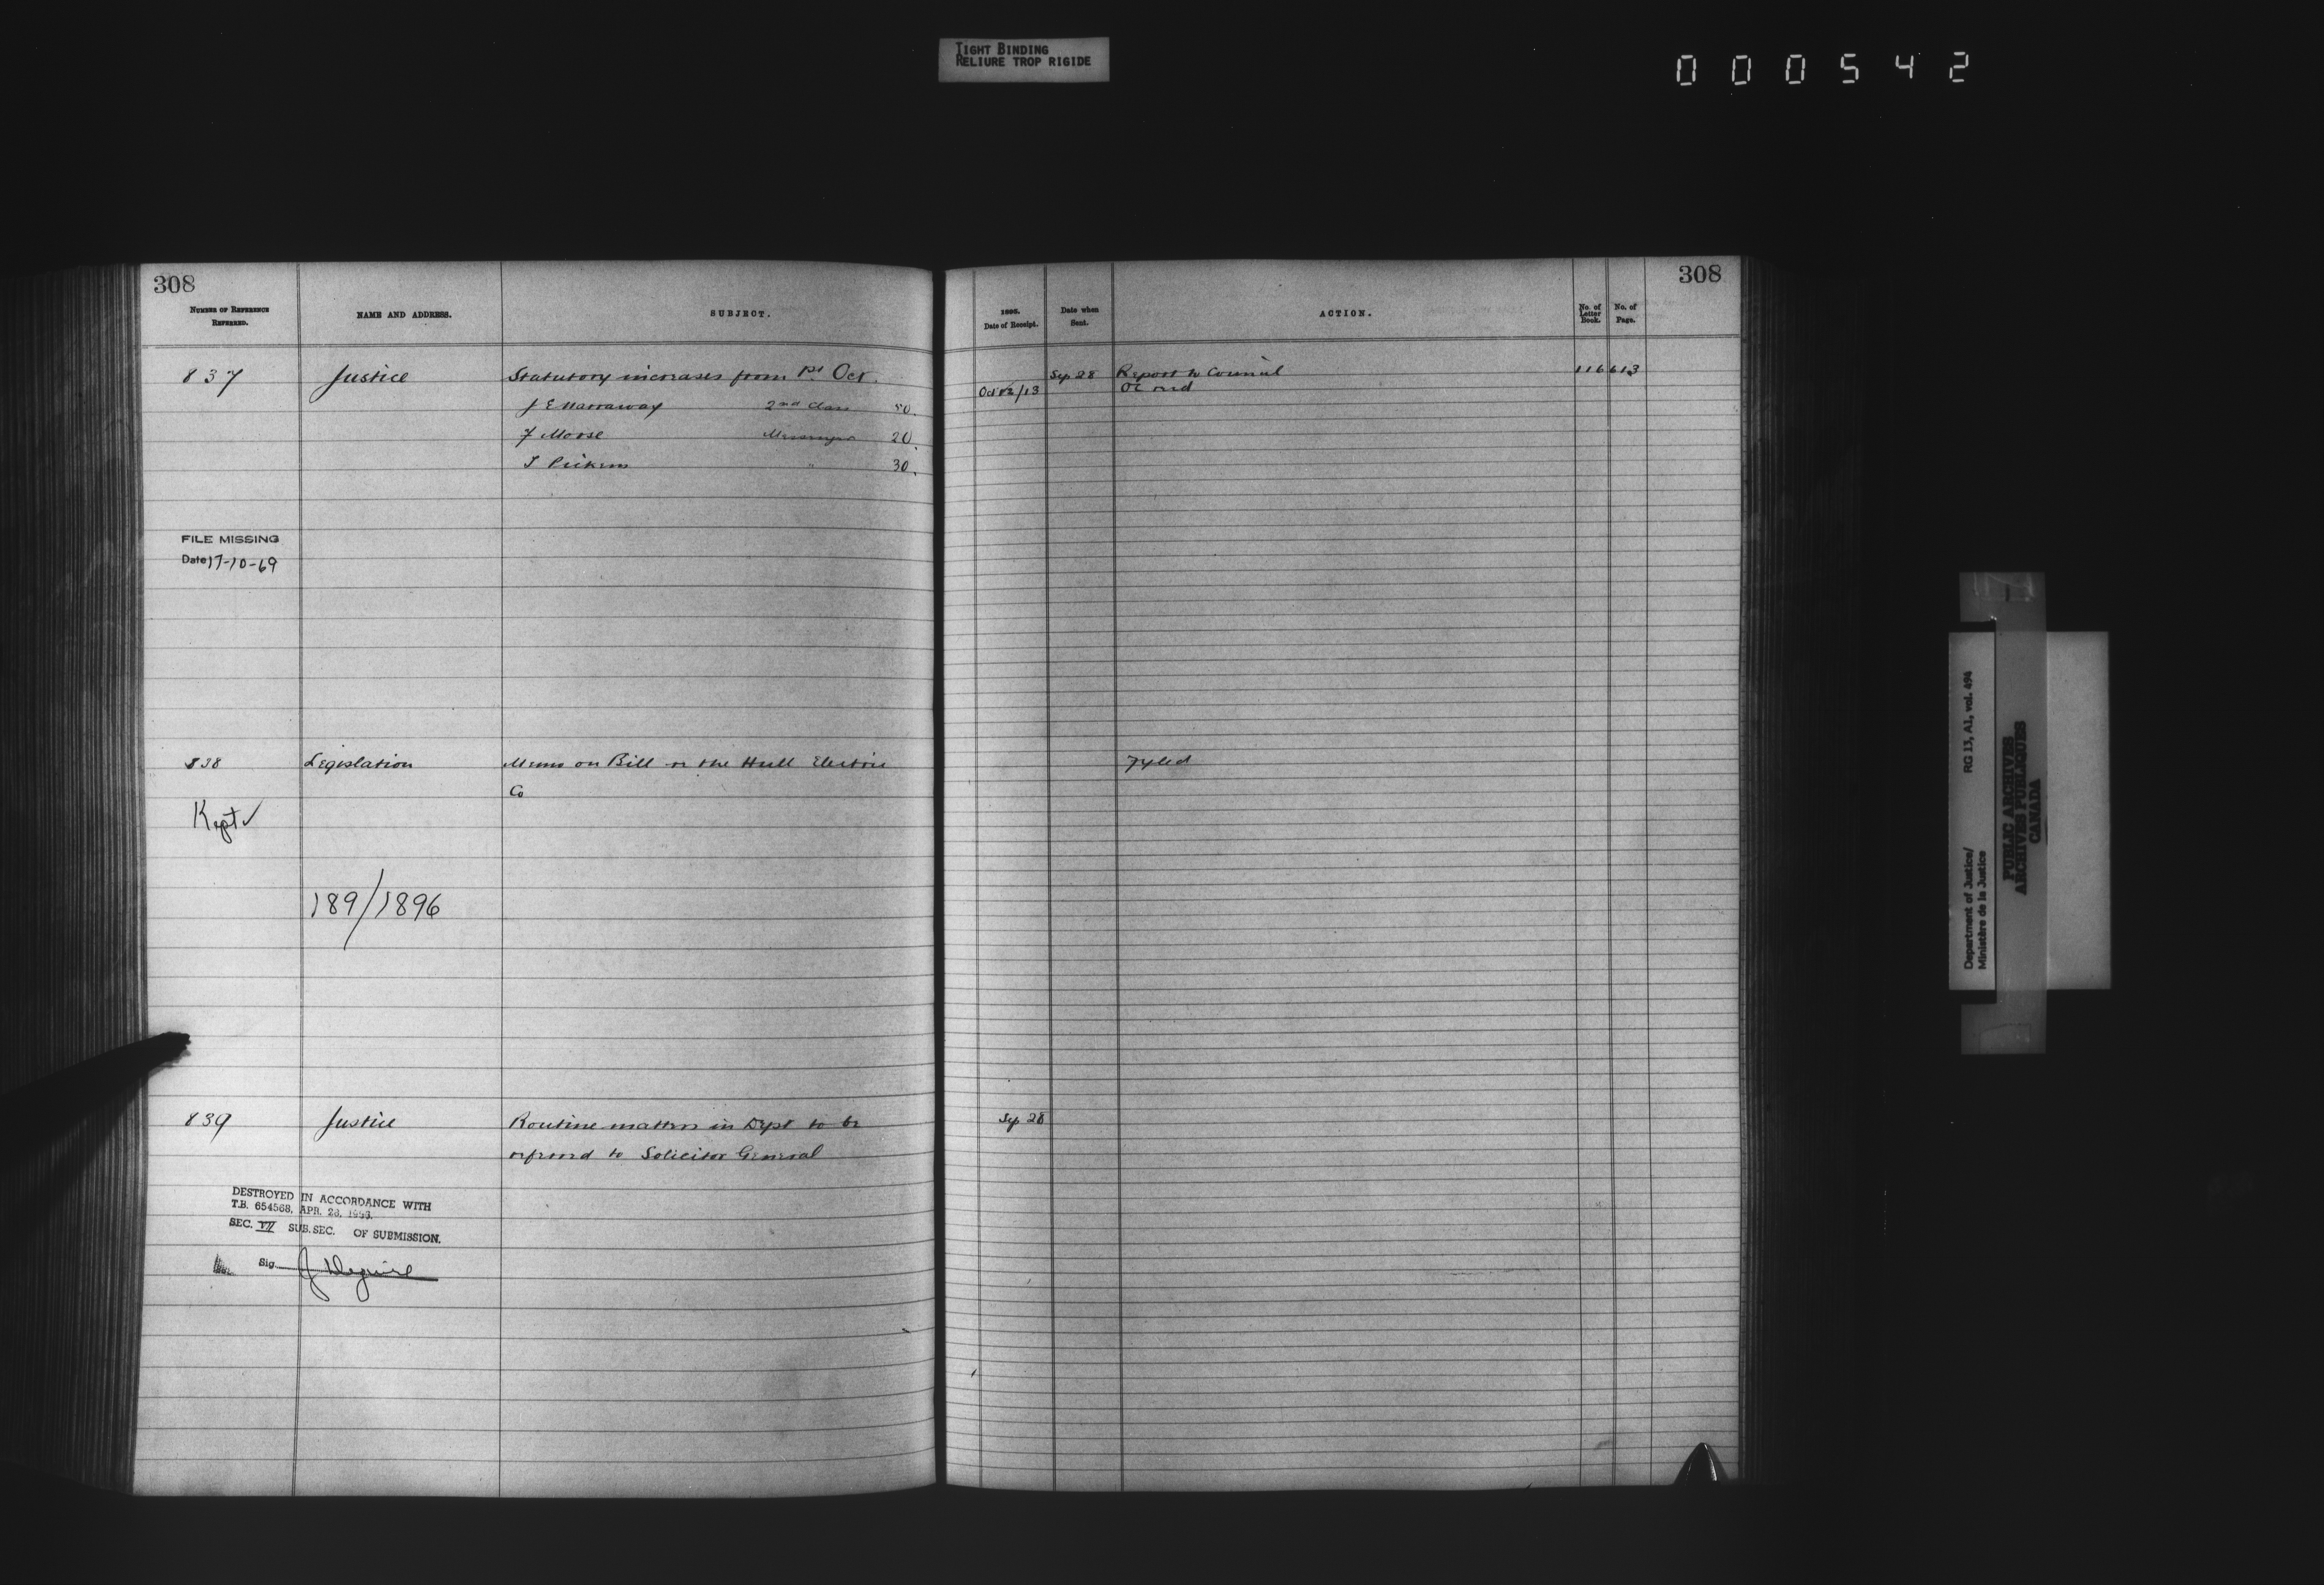 TIGHT BINDING
RELIURE TROP RIGIDE
000542
308
NUMBER OF REFERENCE
REFERRED.
NAME AND ADDRESS.
SUBJECT.
837
Justice
Statutory increases from 1st Oct.
J E Narraway 2nd Class 50.
F Morse Messenger 20.
T " 30.
FILE MISSING
Date 17-10-69
838
Legislation
Memo on Bill re the Hull Electric
Co
Kept ✓
189/1896
839
Justice
Routine matters in Dept to be
referred to Solicitor General
DESTROYED IN ACCORDANCE WITH
T.B. 654568, APR. 26,
SEC. VII SUB. SEC. OF SUBMISSION.
Sig.
308
Date of Receipt.
Date when
Sent.
ACTION.
No. of
Letter
Book.
No. of
Page.
Sep 28 Report to Council 116 613
Oct /13 OC recd
Fyled
Sep 28
Department of Justice/ RG 13, A1, vol. 494
Ministère de la Justice
PUBLIC ARCHIVES
ARCHIVES PUBLIQUES
CANADA